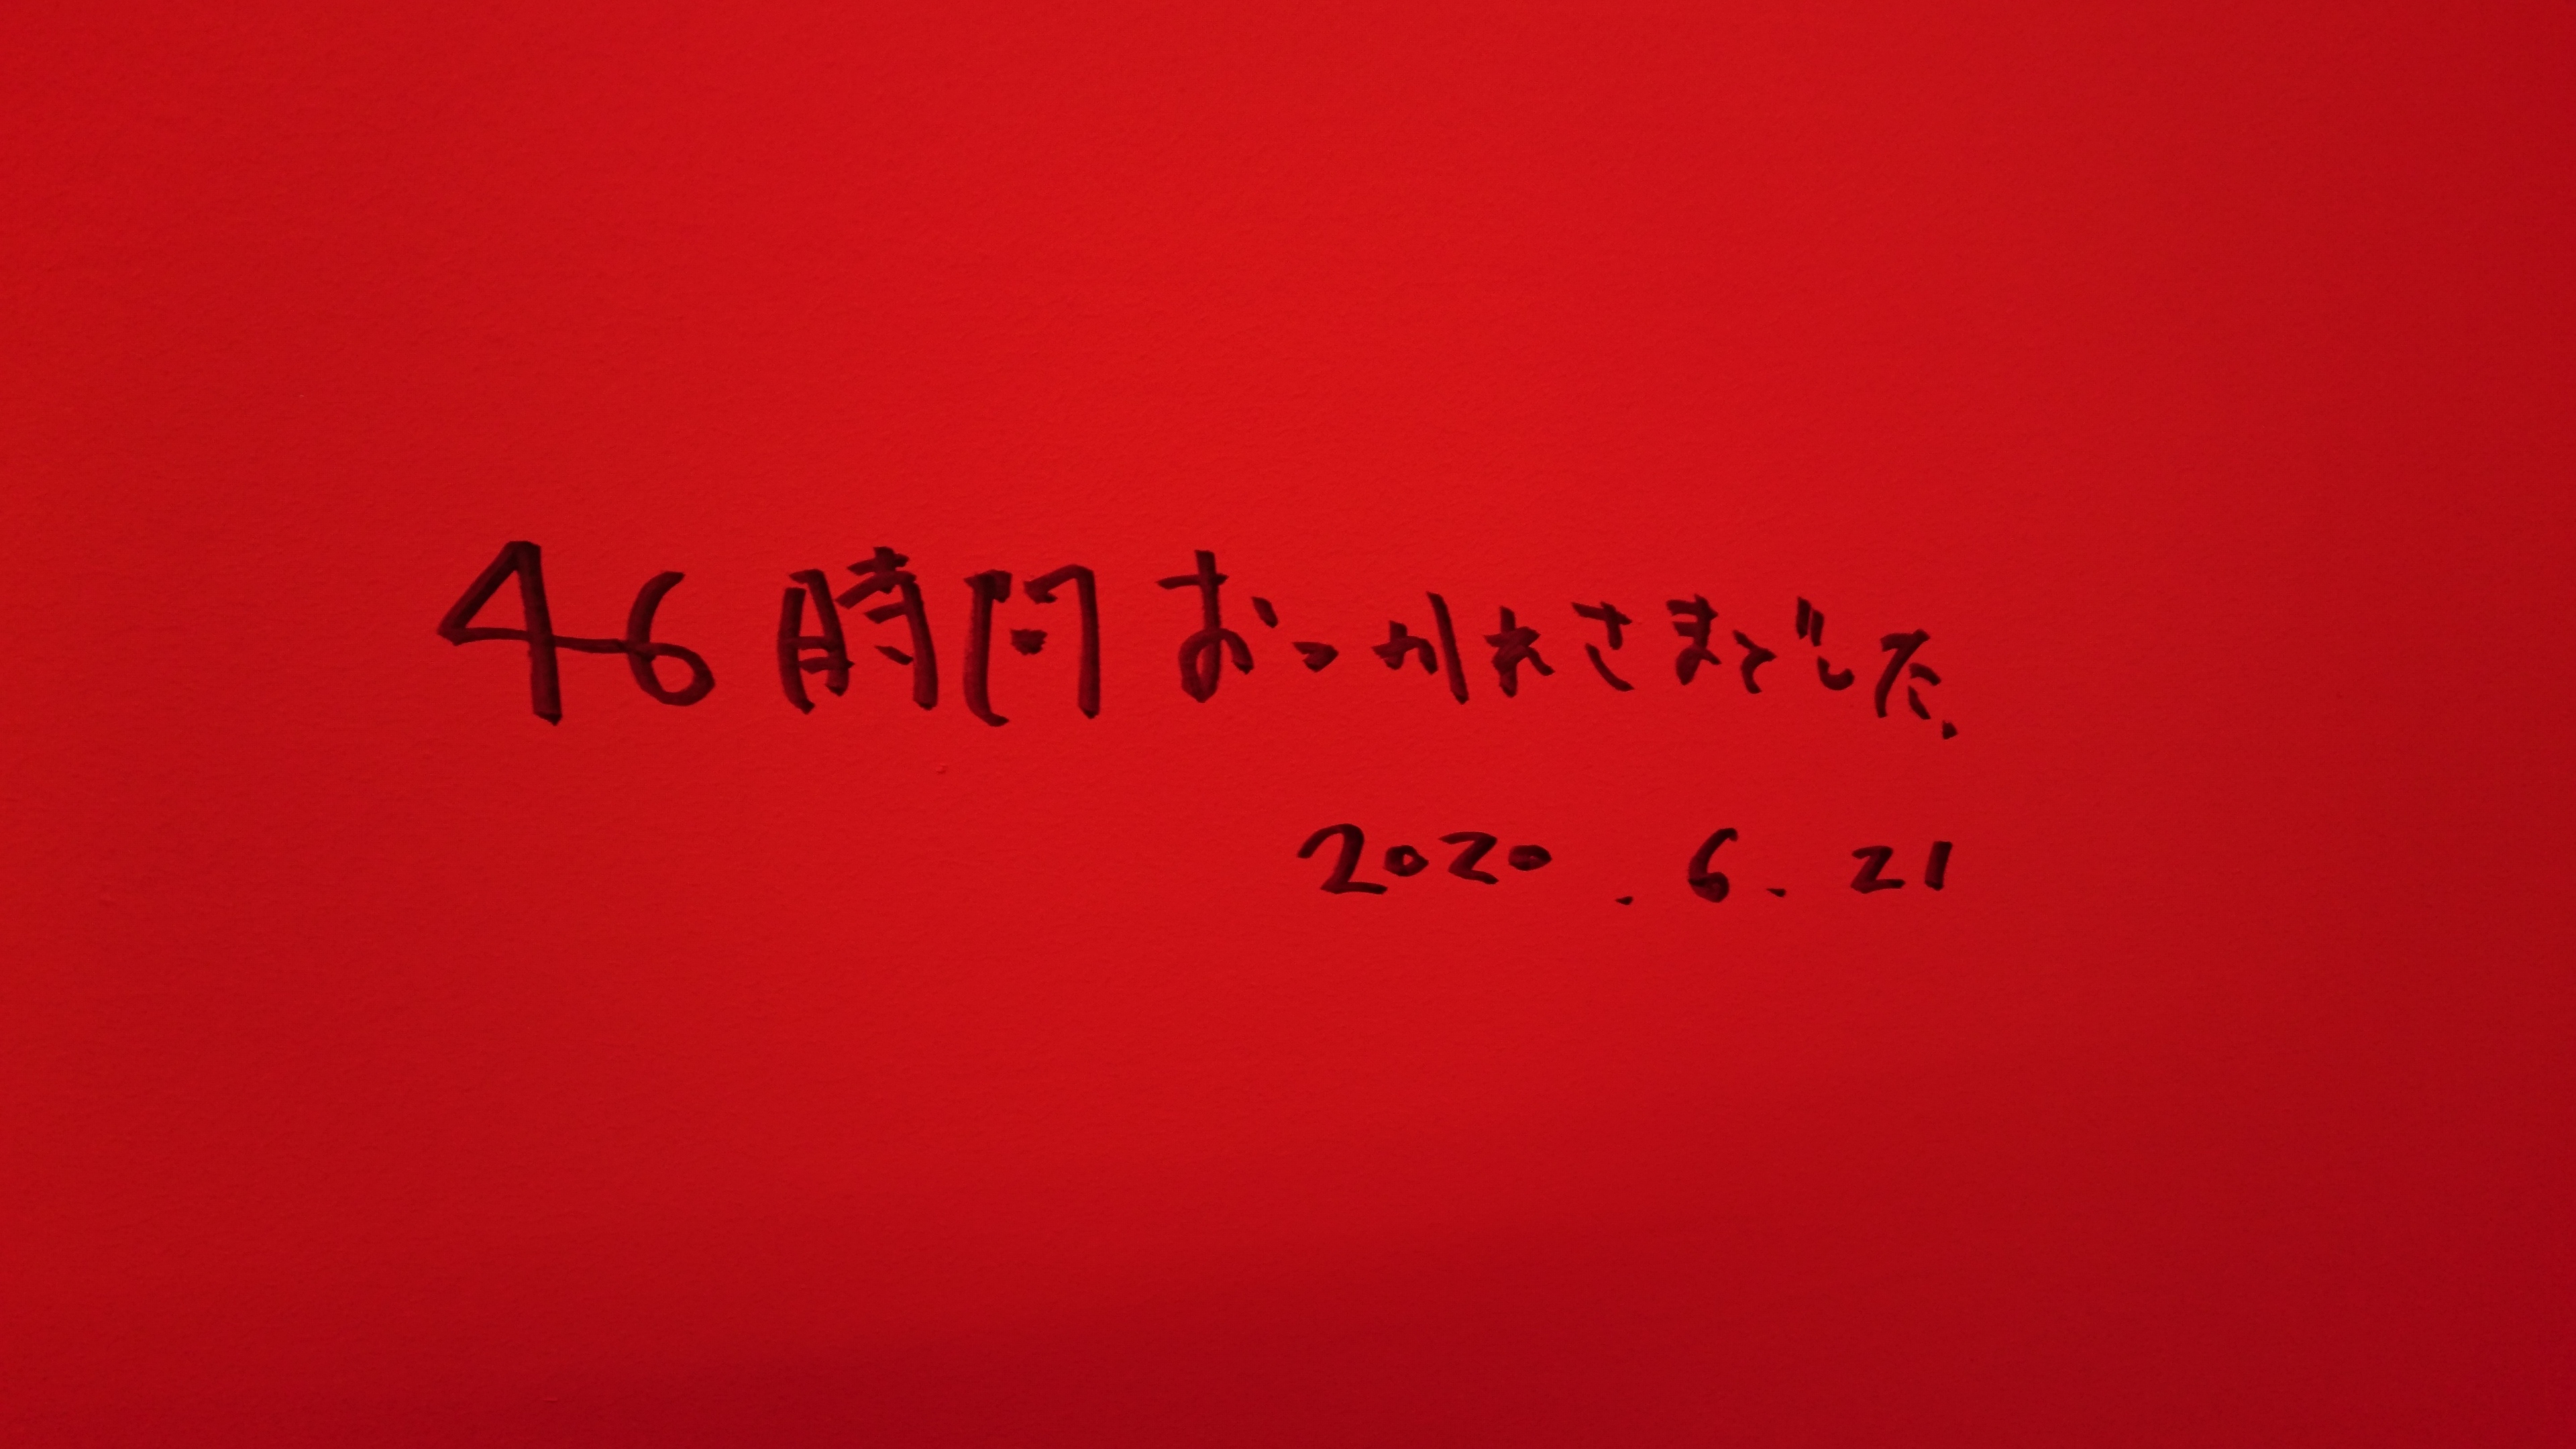 46時間おつかれさまでした.
2020.6.21